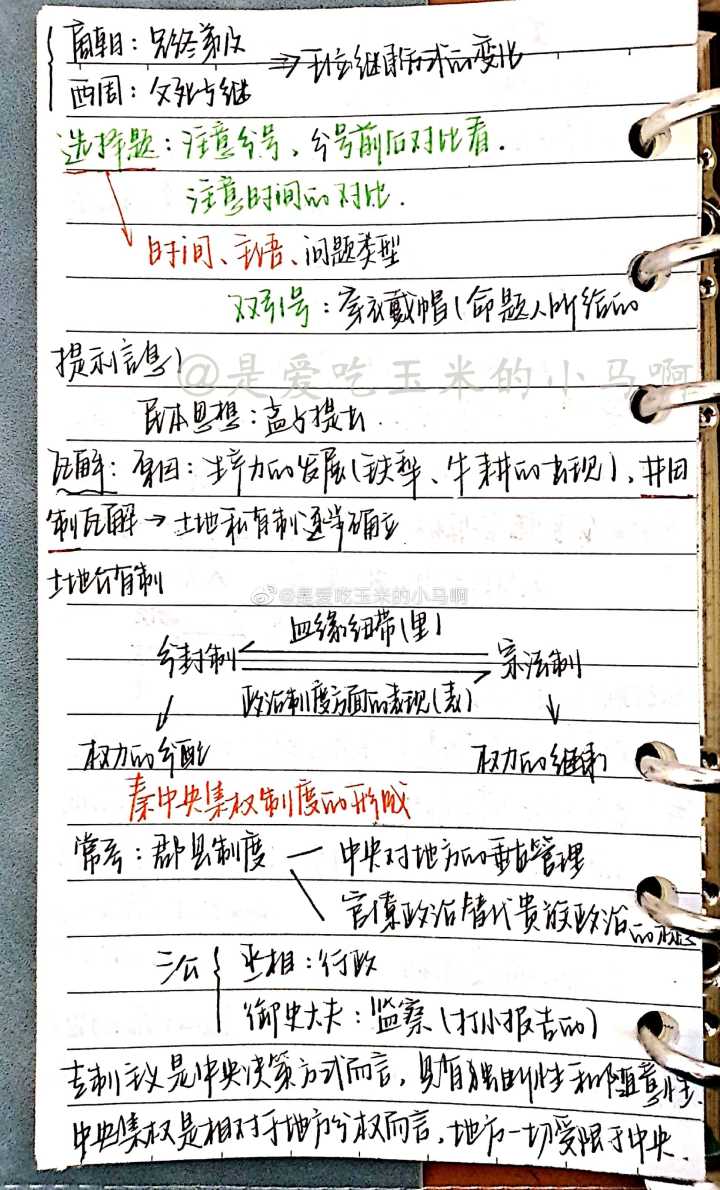 商朝：兄终弟及
西周：父死子继
⇒王位继承方式的变化
选择题：注意分号，分号前后对比看．
注意时间的对比．
时间、主语、问题类型
双引号：穿衣戴帽（命题人所给的
提示信息）
@是爱吃玉米的小马啊
民本思想：孟子提出
瓦解：原因：生产力的发展（铁犁、牛耕的出现），井田
制瓦解→土地私有制逐步确立
土地公有制
@是爱吃玉米的小马啊
血缘纽带（里）
分封制 宗法制
政治制度方面的表现（表）
权力的分配 权力的继承
秦中央集权制度的形成
常考：郡县制度 — 中央对地方的垂直管理
官僚政治替代贵族政治的
三公 { 丞相：行政
御史大夫：监察（打小报告的）
专制主义是中央决策方式而言，具有独断性和随意性．
中央集权是相对于地方分权而言，地方一切受限于中央．